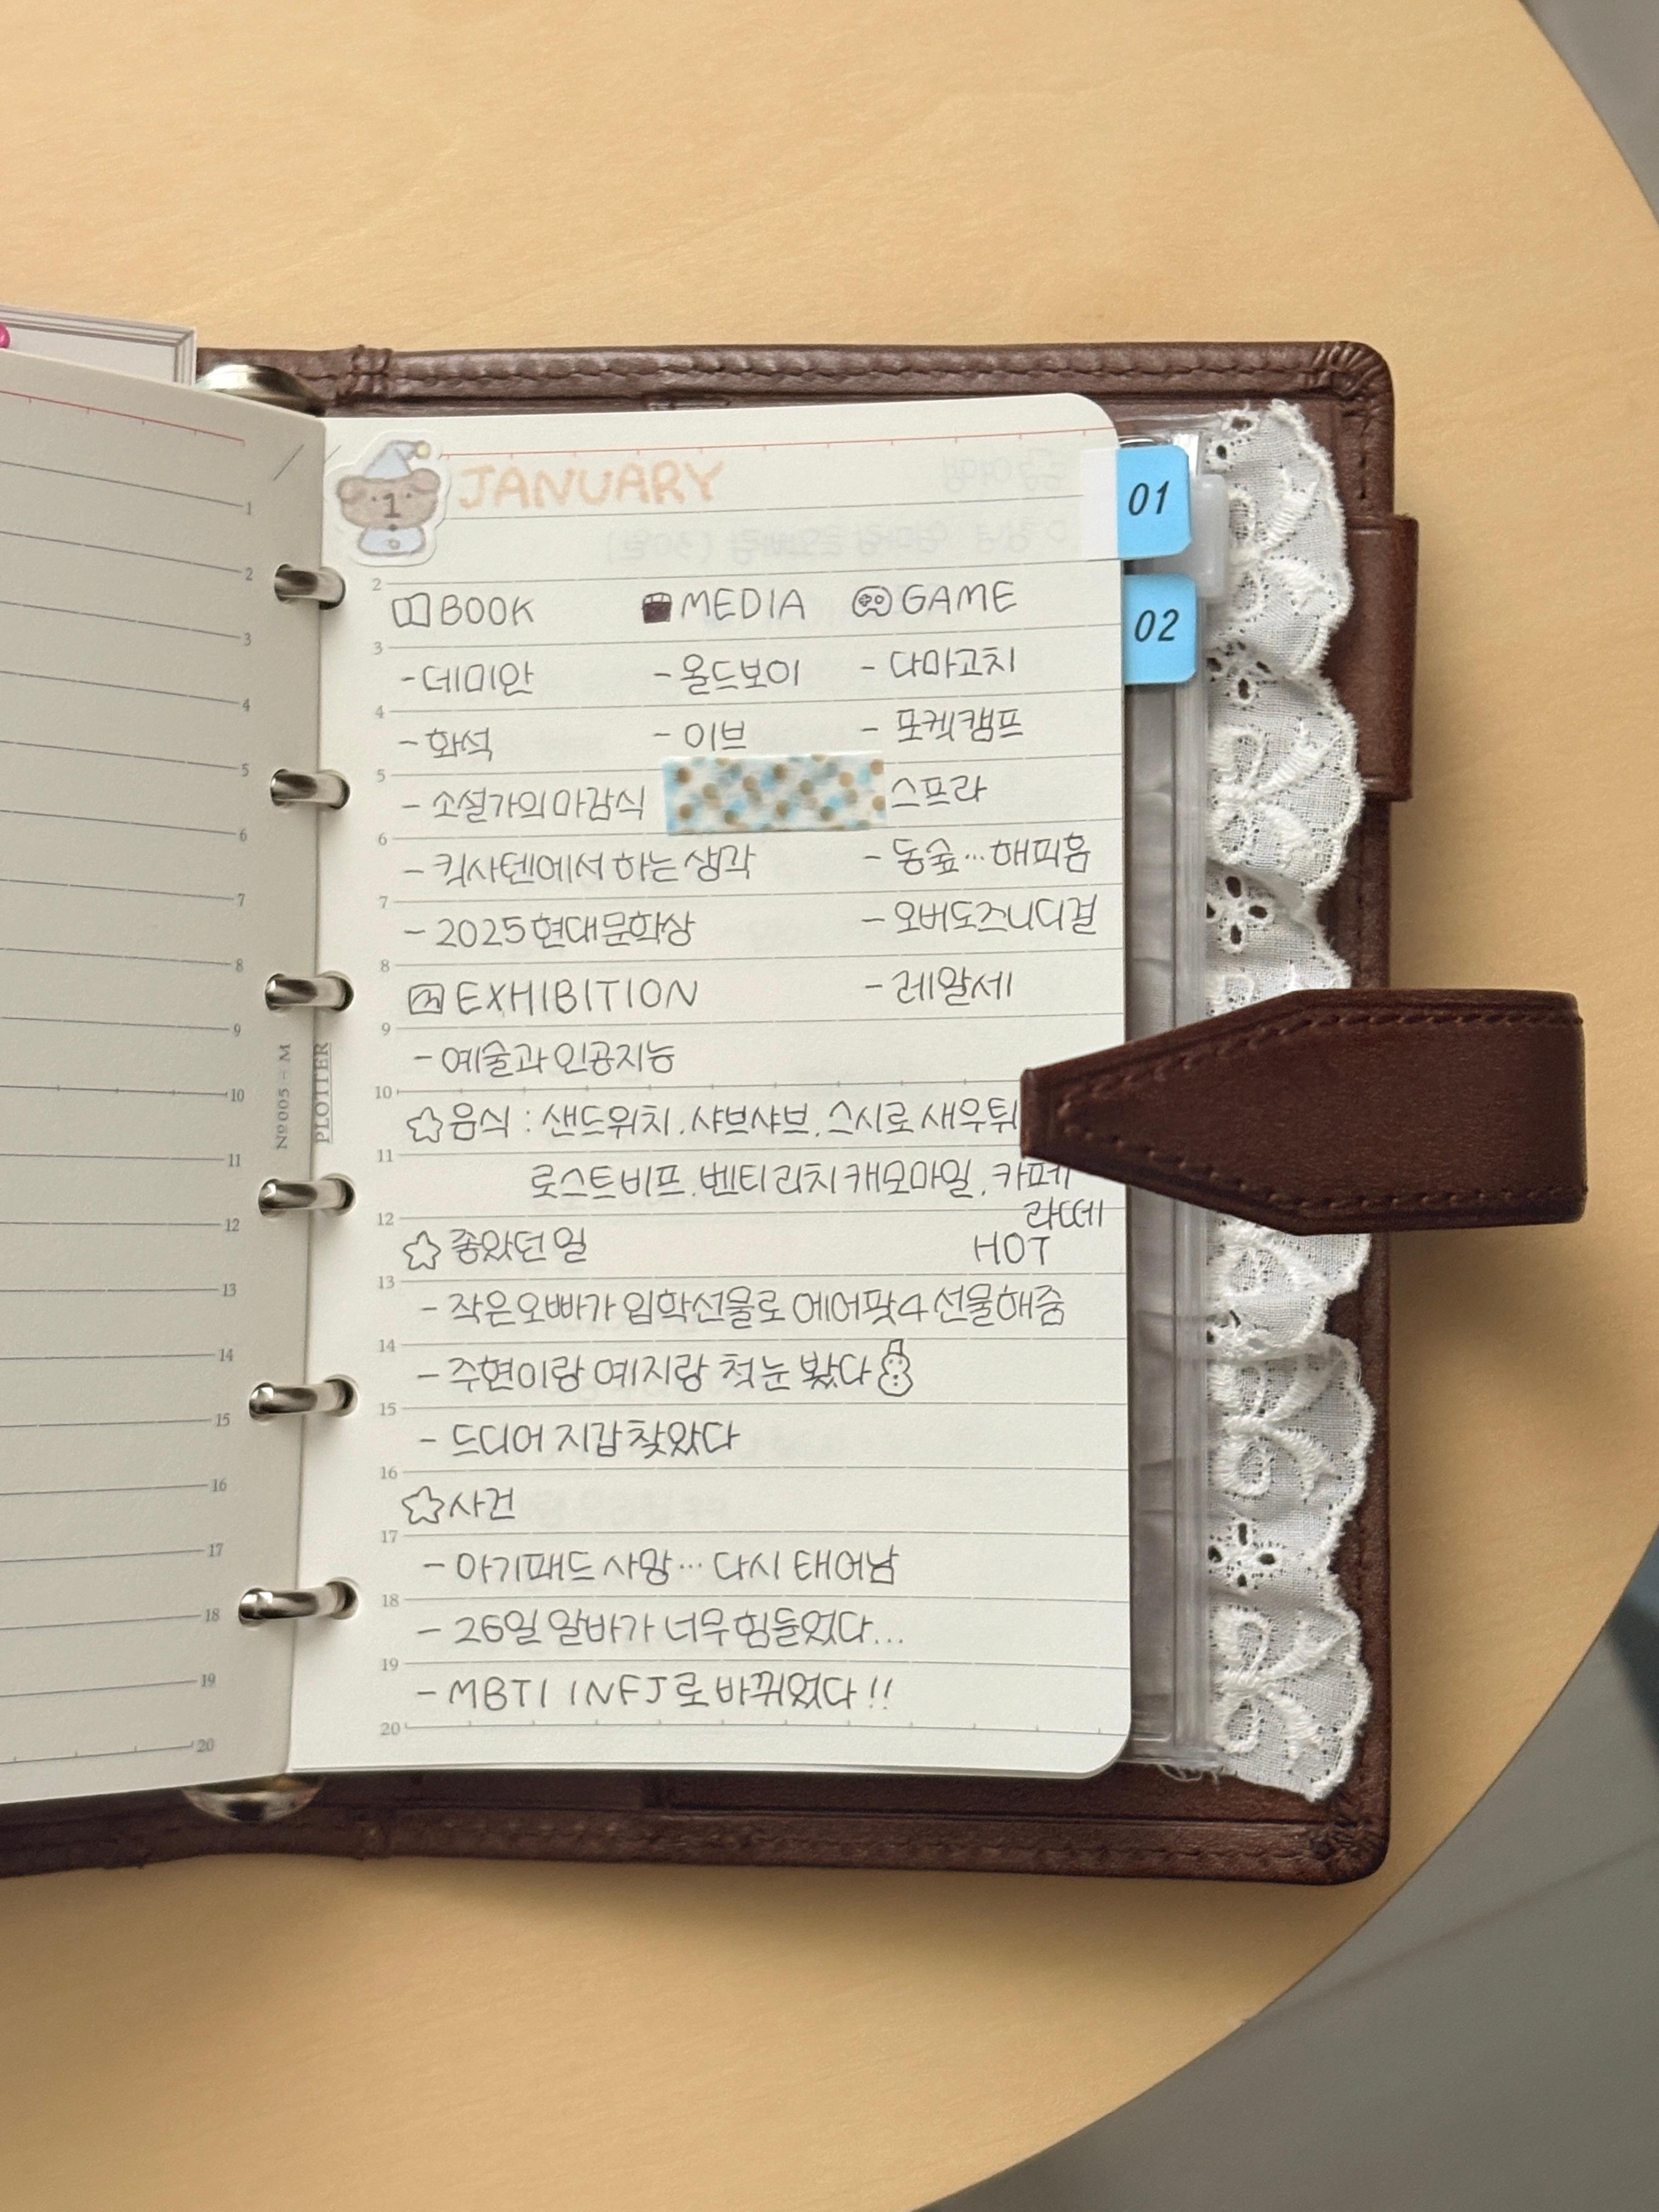 JANUARY
1
01
02
BOOK MEDIA GAME
-데미안 -올드보이 -다마고치
-화석 -이브 -포켓캠프
-소설가의마감식 스프라
-킥사텐에서 하는 생각 -동숲…해피홈
-2025현대문학상 -오버도즈니디걸
EXHIBITION -레알세
-예술과 인공지능
☆음식 : 샌드위치. 샤브샤브. 스시로 새우튀
로스트비프. 벤티 리치 캐모마일. 카페
라떼
☆좋았던 일 HOT
-작은오빠가 입학선물로 에어팟4 선물해줌
-주현이랑 예지랑 첫눈 봤다
-드디어 지갑 찾았다
☆사건
-아기패드 사망… 다시 태어남
-26일 알바가 너무 힘들었다...
-MBTI INFJ로 바뀌었다!!
2
3
4
5
6
7
8
9
10
11
12
13
14
15
16
17
18
19
20
Nº005-M
PLOTTER
1
2
3
4
5
6
7
8
9
10
11
12
13
14
15
16
17
18
19
20